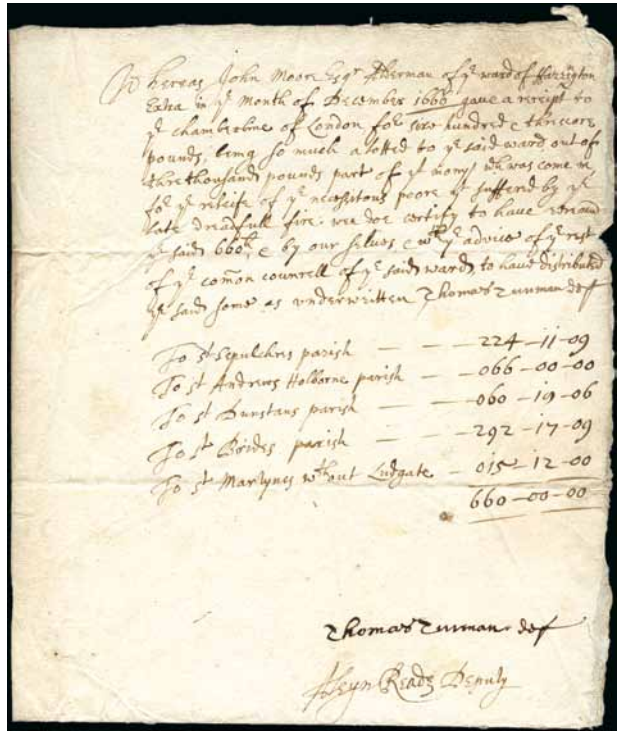 Whereas John Moore Esqr Alderman of ye ward of Farrigton
Extra in ye Month of December 1666 gave a receipt to
ye chamberline of London for six hundred & threscore
pounds, being so much alotted to ye said ward out of
thre thousand pounds part of ye monys wh was come in
for ye releife of ye necessitous poore yt suffered by ye
late dreadfull fire. wee doe certify to have receaud
ye said 660li, & by our selves & wth ye advice of ye rest
of ye comon councell of ye said ward, to have distributed
ye said some as underwritten Thomas
To St Sepulchres parish — — — 224-11-09
To St Andrews Holborne parish — — 066-00-00
To St Dunstans parish — — — 060-19-06
To St Brides parish — — — 292-17-09
To St Martyns wthout Ludgate — 015-12-00
660-00-00
Thomas
Aleyn Reade Deputy